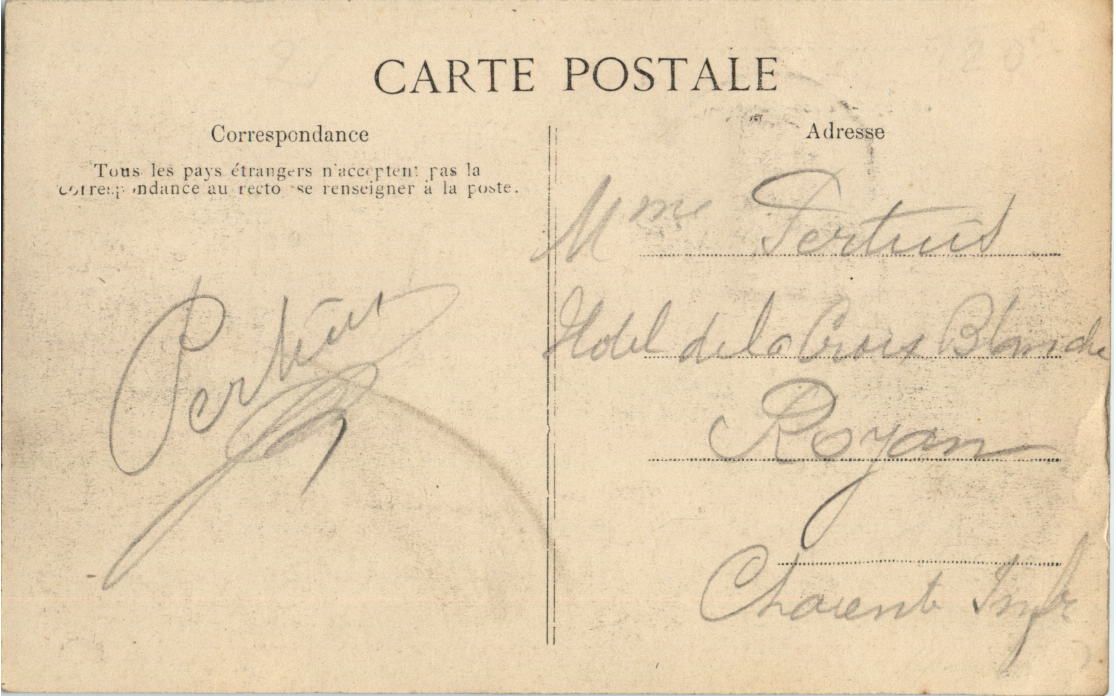 CARTE POSTALE
Correspondance
Tous les pays étrangers n'acceptent pas la
correspondance au recto se renseigner à la poste.
Pertuis
Adresse
Mme Pertuis
Hotel de la Croix Blanche
Royan
Charente Infre